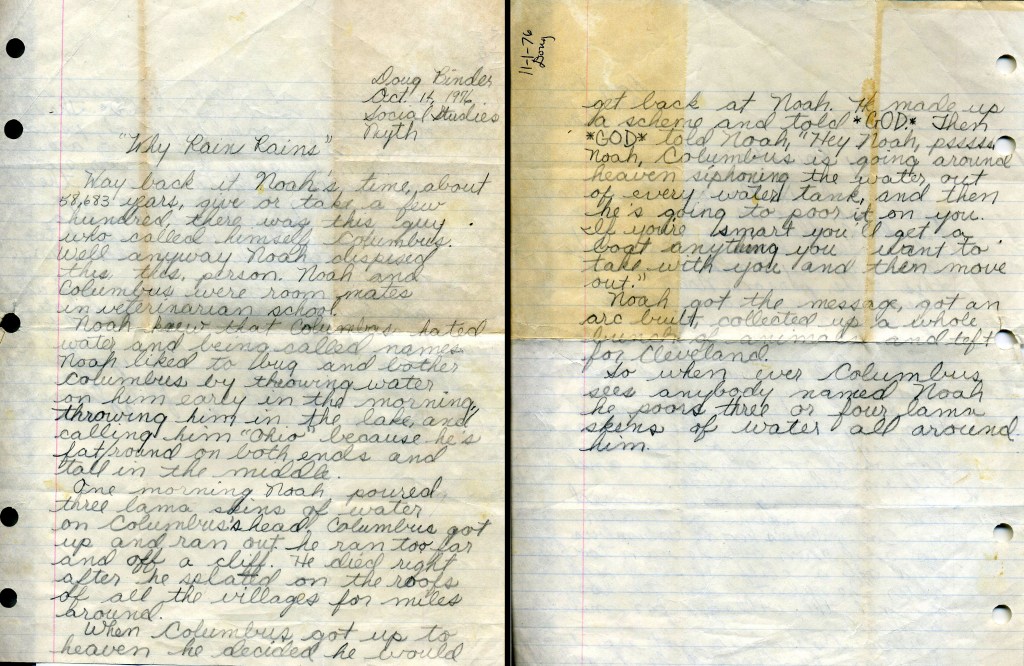 Doug Binder
Oct. 14, 1976
Social Studies
Myth
"Why Rain Rains"
Way back it Noah's time, about
58,683 years, give or take a few
hundred, there was this guy
who called himself Columbus.
Well anyway Noah dispised
this, this, person. Noah and
Columbus were room mates
in veterinarian school.
Noah knew that Columbus hated
water and being called names.
Noah liked to bug and bother
Columbus by throwing water
on him early in the morning,
throwing him in the lake, and
calling him "Ohio" because he's
fat round on both ends and
tall in the middle.
One morning Noah poured
three lama skins of water
on Columbus's head, Columbus got
up and ran out he ran too far
and off a cliff. He died right
after he splatted on the roofs
of all the villages for miles
around.
When Columbus got up to
heaven he decided he would
11-1-76
Doug
get back at Noah. He made up
a scheme and told *GOD.* Then
*GOD* told Noah, "Hey Noah, psssss,
Noah, Columbus is going around
heaven siphoning the water out
of every water tank, and then
he's going to poor it on you.
If you're smart you'll get a
boat anything you want to
take with you and then move
out."
Noah got the message, got an
arc built, collected up a whole
bunch of animals and left
for Cleveland.
So when ever Columbus
sees anybody named Noah
he poors three or four lama
skens of water all around
him.